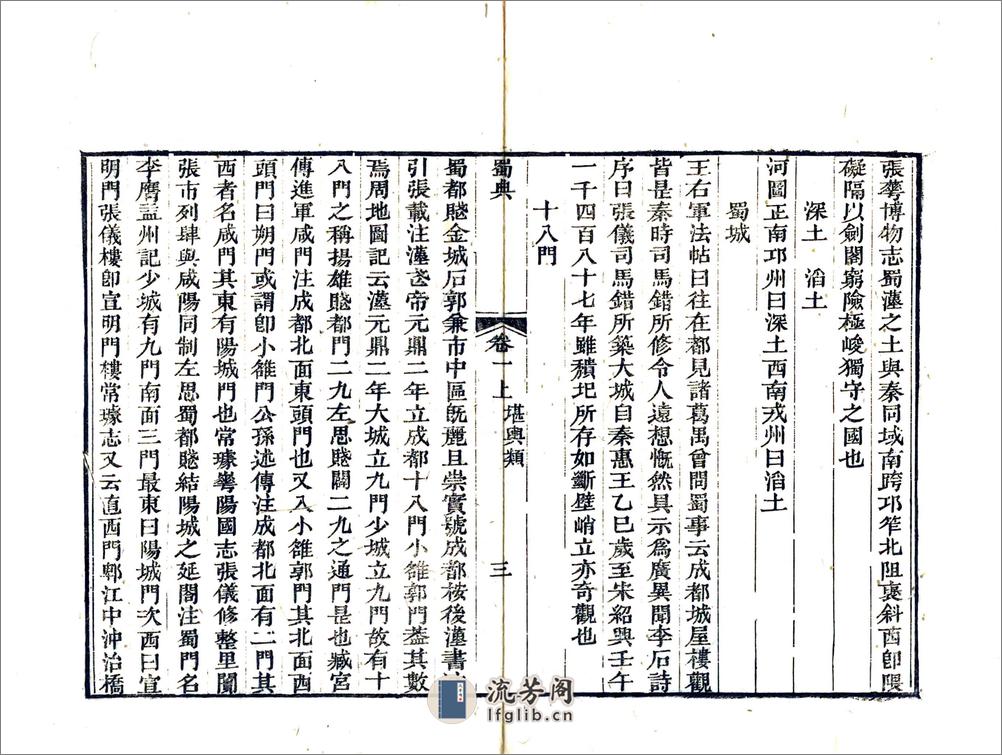 張華博物志蜀漢之土與秦同域南跨邛笮北阻襃斜西卽隈
礙隔以劍閣窮險極峻獨守之國也
深土　滔土
河圖正南邛州曰深土西南戎州曰滔土
蜀城
王右軍法帖曰往在都見諸葛禺曾問蜀事云成都城屋樓觀
皆是秦時司馬錯所修令人遠想慨然具示爲廣異聞李石詩
序曰張儀司馬錯所築大城自秦惠王乙巳歲至宋紹興壬午
一千四百八十七年雖穨圯所存如斷壁峭立亦奇觀也
十八門
蜀典　卷一上　堪輿類　三
蜀都賦金城石郭兼市中區旣麗且崇實號成都桉後漢書
引張載注漢武帝元鼎二年立成都十八門小雒郭門蓋其數
焉周地圖記云漢元鼎二年大城立九門少城立九門故有十
八門之稱揚雄賦都門二九左思賦闢二九之通門是也臧宮
傳進軍咸門注成都北面東頭門也又入小雒郭門其北面西
頭門曰朔門或謂卽小雒門公孫述傳注成都北面有二門其
西者名咸門其東有陽城門也常璩華陽國志張儀修整里闠
張市列肆與咸陽同制左思蜀都賦結陽城之延閣注蜀門名
李膺益州記少城有九門南面三門最東曰陽城門次西曰宣
明門張儀樓卽宣明門樓常璩志又云直西門郫江中沖治橋
流芳阁
lfglib.cn